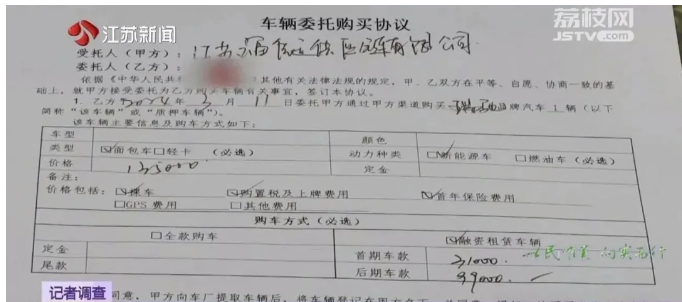 江苏新闻
荔枝网
JSTV.com
车辆委托购买协议
受托人（甲方）：江苏 有限公司
委托人（乙方）：
依据《中华人民共 其他有关法律法规的规定，甲、乙双方在平等、自愿、协商一致的基
础上，就甲方接受委托为乙方购买车辆有关事宜，签订本协议。
1. 乙方2024年3月11日委托甲方通过甲方渠道购买 品牌汽车 1 辆（以下
简称“该车辆”或“质押车辆”）。
该车辆主要信息及购车方式如下：
车型 颜色
类型 ☑面包车☐轻卡 （必选） 动力种类 ☑新能源车 ☐燃油车（必选）
价格 135000 定金
备注：
价格包括：☑裸车 ☑购置税及上牌费用 ☑首年保险费用
☐GPS 费用 ☐其他费用
购车方式（必选）
☐全款购车 ☑融资租赁车辆
定金 首期车款 31000.
尾款 后期车款 99000.
记者调查
同意，甲方向车厂提取车辆后，将车辆登记在甲方名下